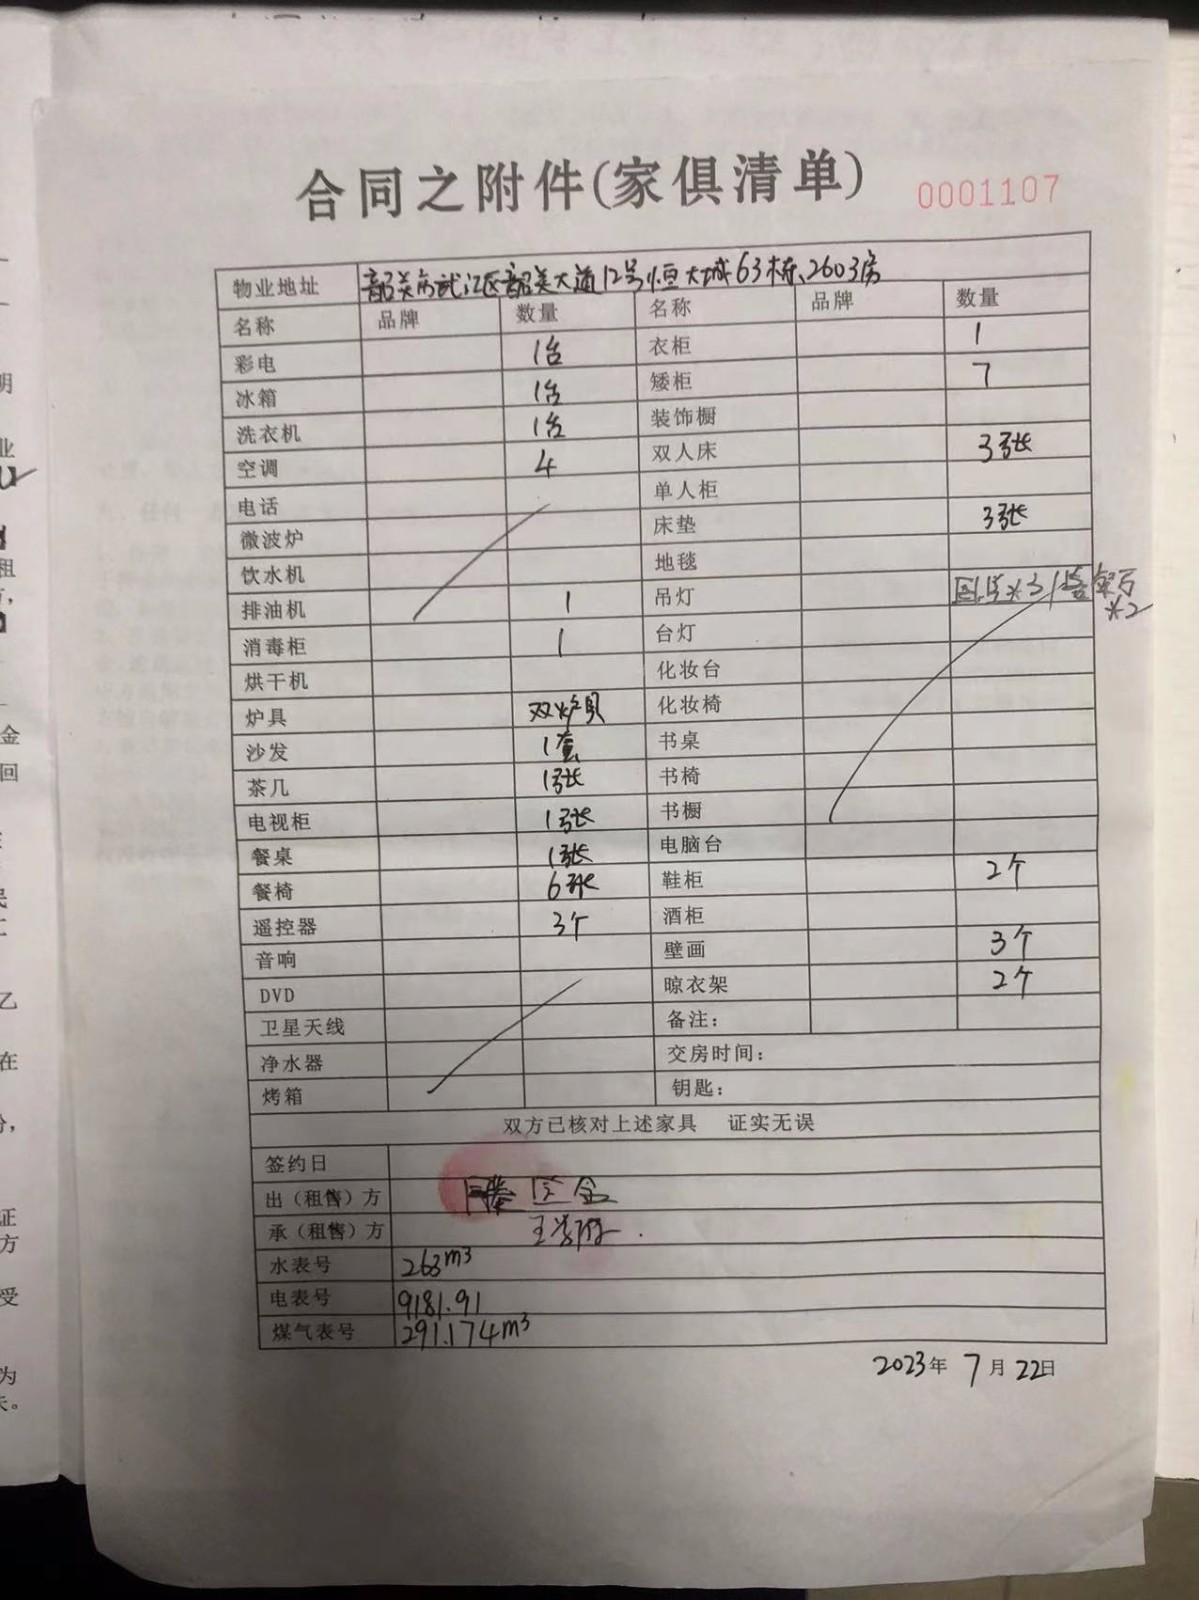 合同之附件(家俱清单) 0001107
物业地址 韶关市武江区韶关大道12号恒大城63栋、2603房
名称 品牌 数量 名称 品牌 数量
彩电 1台 衣柜 1
冰箱 1台 矮柜 7
洗衣机 1台 装饰橱
空调 4 双人床 3张
电话 单人柜
微波炉 床垫 3张
饮水机 地毯
排油机 1 吊灯
消毒柜 1 台灯
烘干机 化妆台
炉具 双炉具 化妆椅
沙发 1套 书桌
茶几 1张 书椅
电视柜 1张 书橱
餐桌 1张 电脑台
餐椅 6张 鞋柜 2个
遥控器 3个 酒柜
音响 壁画 3个
DVD 晾衣架 2个
卫星天线 备注：
净水器 交房时间：
烤箱 钥匙：
双方已核对上述家具 证实无误
签约日
出（租售）方
承（租售）方
水表号 263m³
电表号 9181.91
煤气表号 291.174m³
2023年 7月 22日